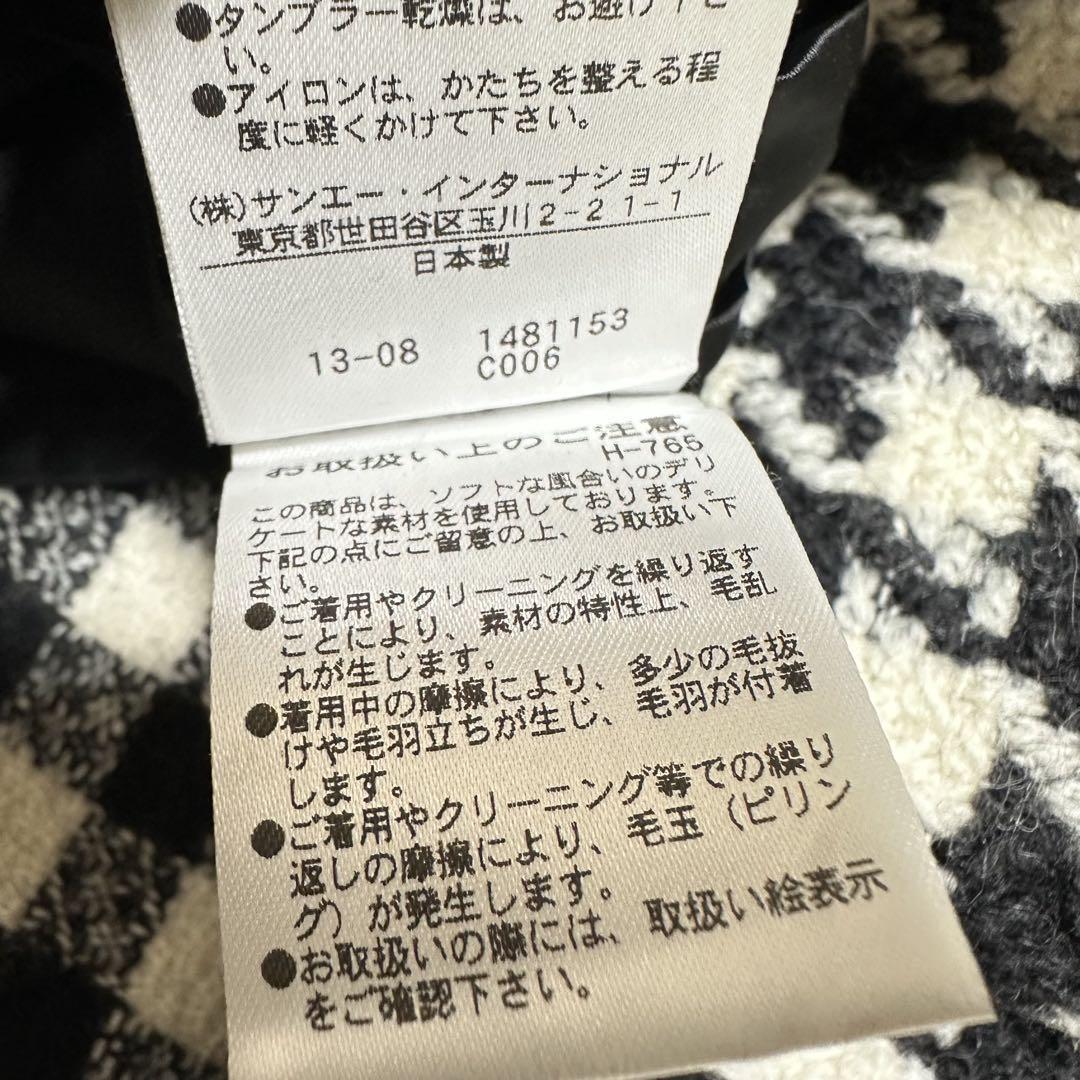 ●タンブラー乾燥は、お避け下さ
い。
●アイロンは、かたちを整える程
度に軽くかけて下さい。
(株)サンエー・インターナショナル
東京都世田谷区玉川2-21-1
日本製
13-08 1481153
C006
お取扱い上のご注意
H-765
この商品は、ソフトな風合いのデリ
ケートな素材を使用しております。
下記の点にご留意の上、お取扱い下
さい。
●ご着用やクリーニングを繰り返す
ことにより、素材の特性上、毛乱
れが生じます。
●着用中の摩擦により、多少の毛抜
けや毛羽立ちが生じ、毛羽が付着
します。
●ご着用やクリーニング等での繰り
返しの摩擦により、毛玉（ピリン
グ）が発生します。
●お取扱いの際には、取扱い絵表示
をご確認下さい。